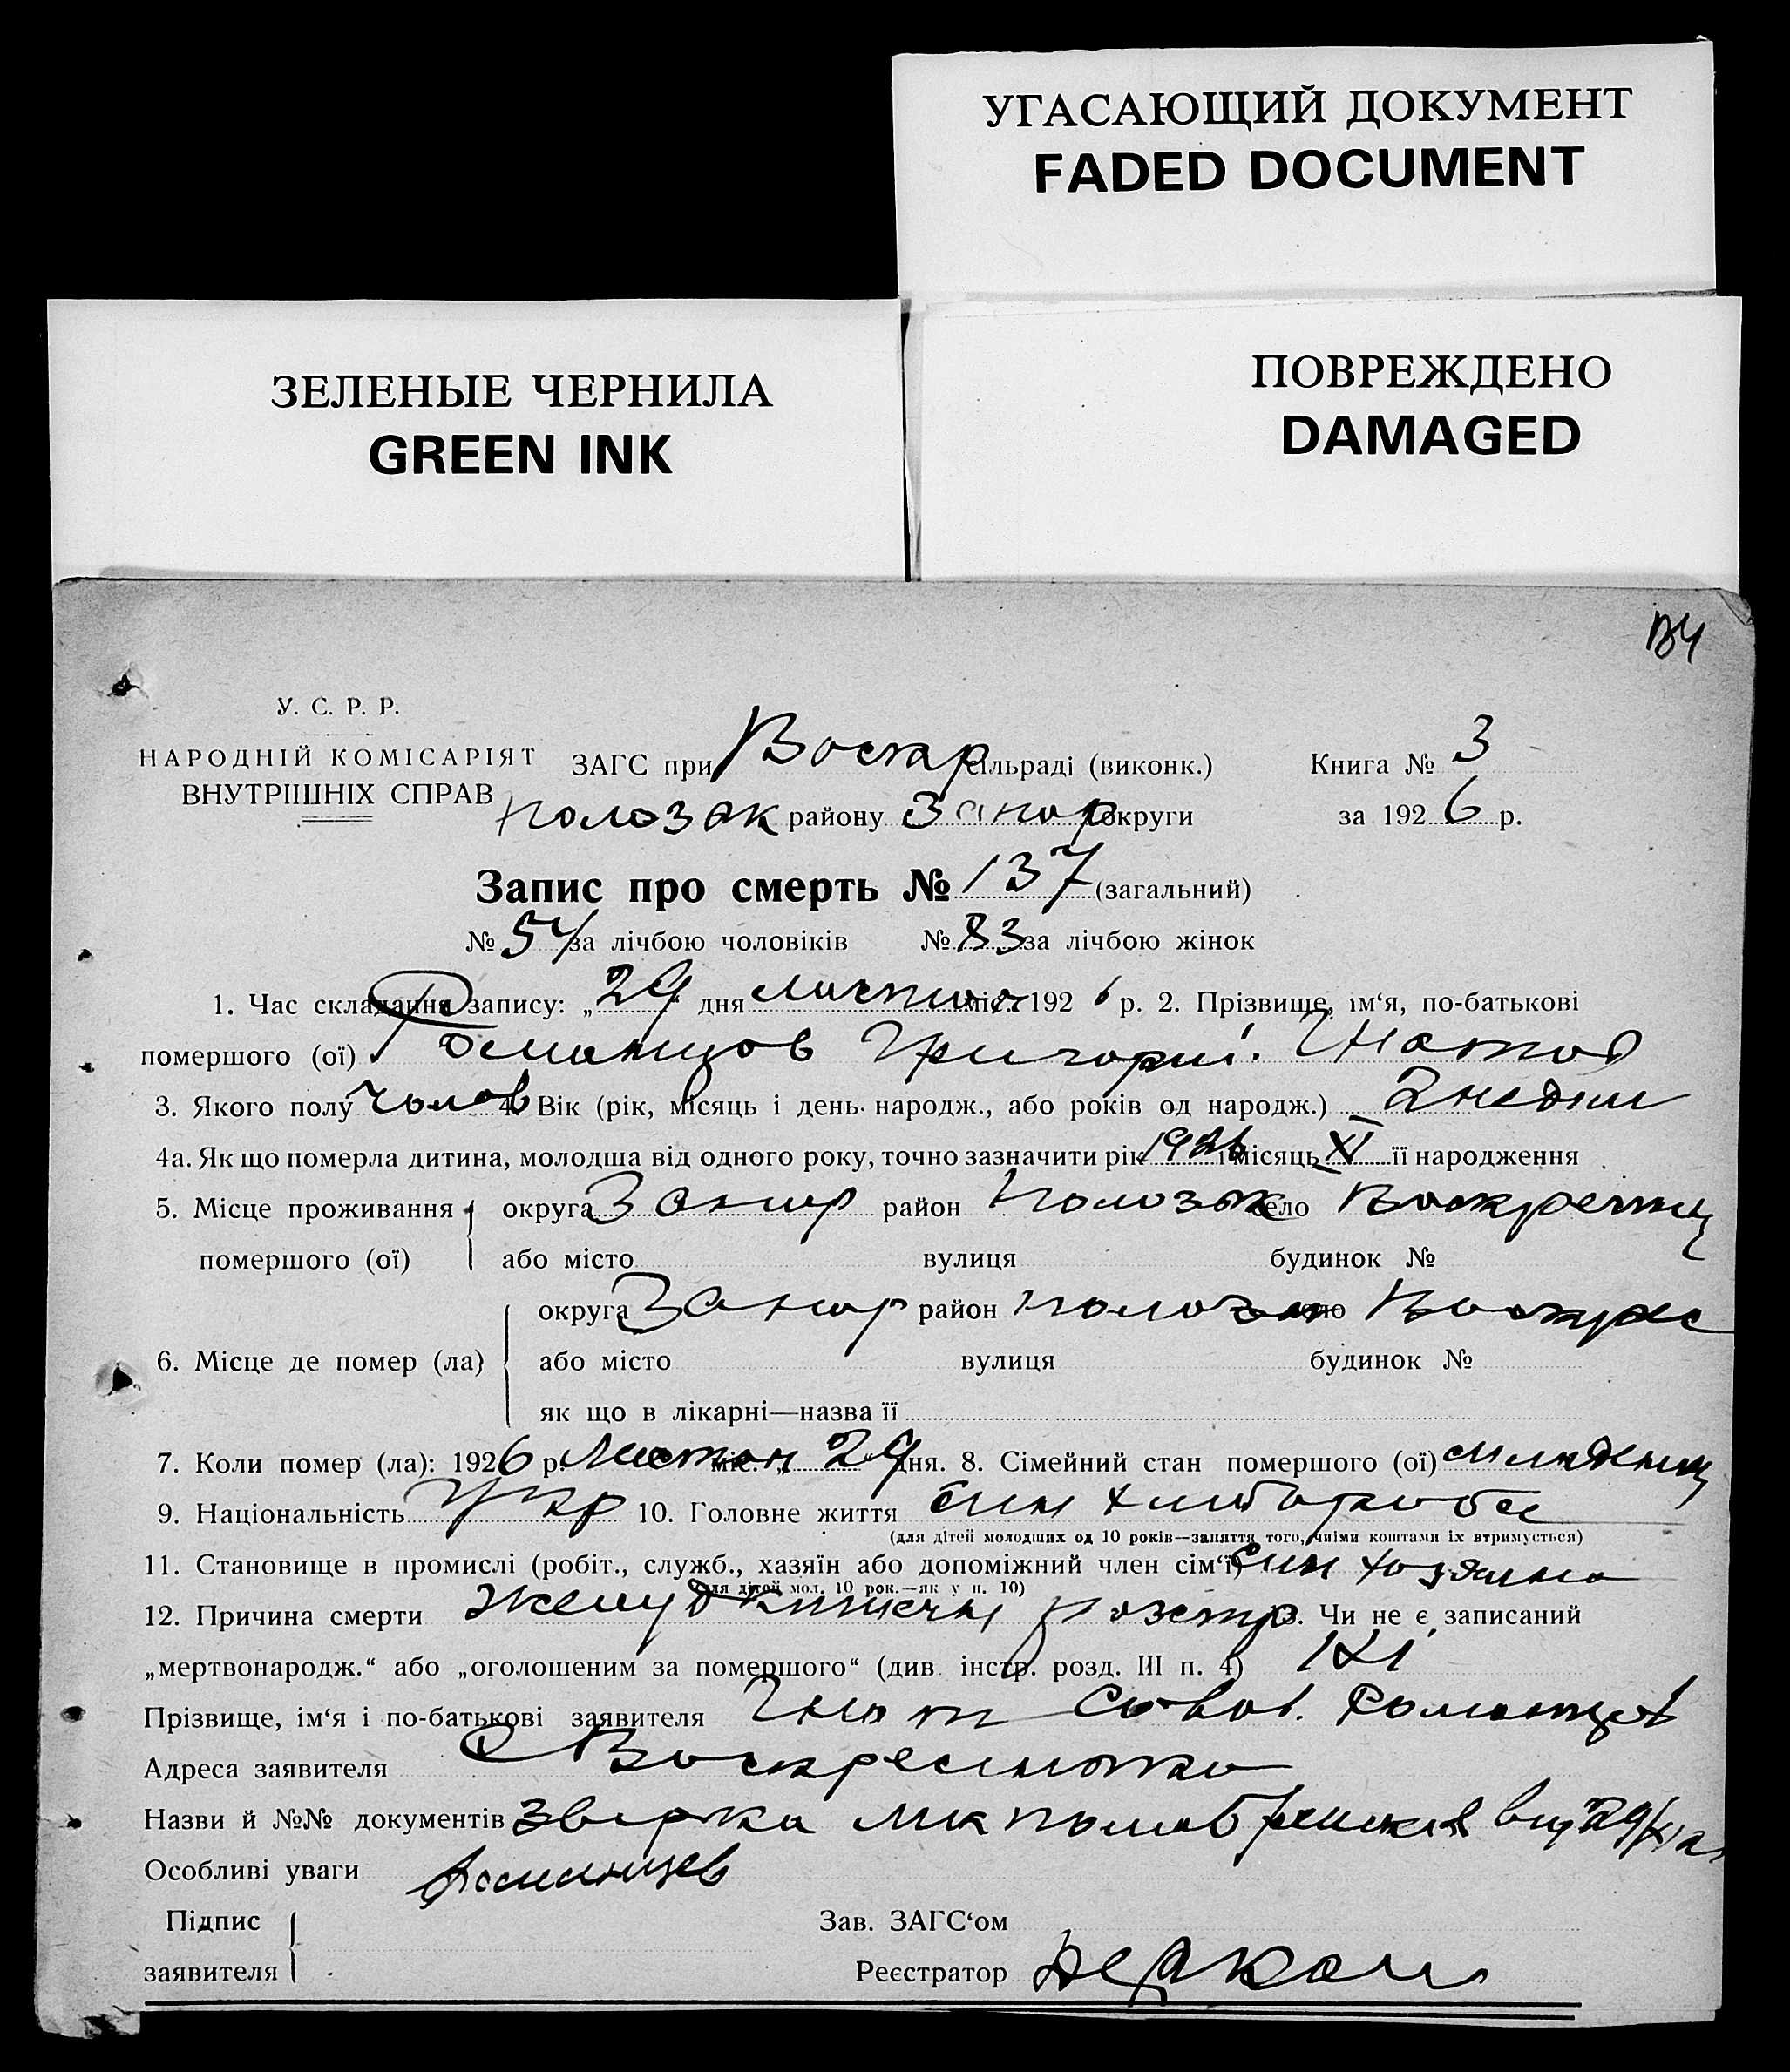 УГАСАЮЩИЙ ДОКУМЕНТ
FADED DOCUMENT
ЗЕЛЕНЫЕ ЧЕРНИЛА
GREEN INK
ПОВРЕЖДЕНО
DAMAGED
У. С. Р. Р.
НАРОДНІЙ КОМІСАРІЯТ
ВНУТРІШНІХ СПРАВ
ЗАГС при Воскр сільраді (виконк.) Книга № 3
полозак району Запор округи за 1926 р.
Запис про смерть № 137 (загальний)
№ 54 за лічбою чоловіків № 83 за лічбою жінок
1. Час складання запису: „29“ дня листоп міс. 1926 р. 2. Прізвище, ім‘я, по-батькові
помершого (ої) Романцов Григорий Игнатов
3. Якого полу чолов 4. Вік (рік, місяць і день народж., або років од народж.) 2 недели
4а. Як що померла дитина, молодша від одного року, точно зазначити рік 1926 і місяць XI її народження
5. Місце проживання округа Запор район Полозак село Воскресенц
помершого (ої) або місто вулиця будинок №
округа Запор район полозак село Воскрес
6. Місце де помер (ла) або місто вулиця будинок №
як що в лікарні—назва її
7. Коли помер (ла): 1926 р. Листоп міс. „29“ дня. 8. Сімейний стан помершого (ої) младенец
9. Національність Укр 10. Головне життя син хлибороба
(для дітей молодших од 10 років—заняття того, чиїми коштами їх втримується)
11. Становище в промислі (робіт., служб., хазяїн або допоміжний член сім‘ї) син хозяина
(для дітей мол. 10 рок.—як у п. 10)
12. Причина смерти розстр 13. Чи не є записаний
„мертвонародж.“ або „оголошеним за помершого“ (див. інстр. розд. III п. 4)
Прізвище, ім‘я і по-батькові заявителя Игнат Романцов
Адреса заявителя с Воскресинка
Назви й №№ документів 29/XI
Особливі уваги Романцев
Підпис Зав. ЗАГС‘ом
заявителя Реєстратор